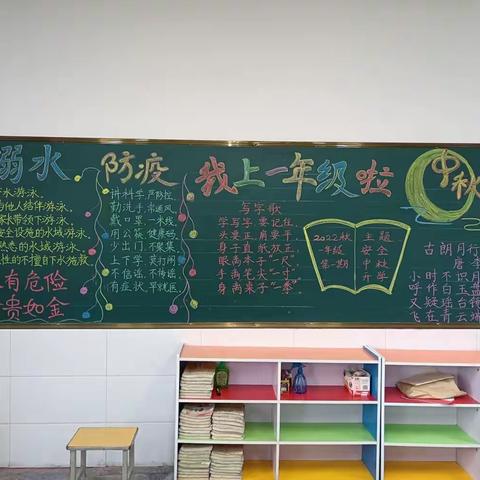 溺水
水游泳、
与他人结伴游泳、
家长带领下游泳、
安全设施的水域游泳、
熟悉的水域游泳、
性的不擅自下水施救
有危险
贵如金
防疫
讲科学 严防控
勤洗手 常通风
戴口罩 一米线
用公筷 健康码
少出门 不聚集
上下学 莫打闹
不信谣 不传谣
有症状 早就医
我上一年级啦
写字歌
学写字 要记住
头要正 肩要平
身子直 纸放正
眼离本子“一尺”
手离笔尖“一寸”
身离桌子“一拳”
2022秋
一年级
第一期
主题
安全
中秋
开学
中秋
古朗月行
唐
小时不识月
呼作白玉盘
又疑瑶台镜
飞在青云端